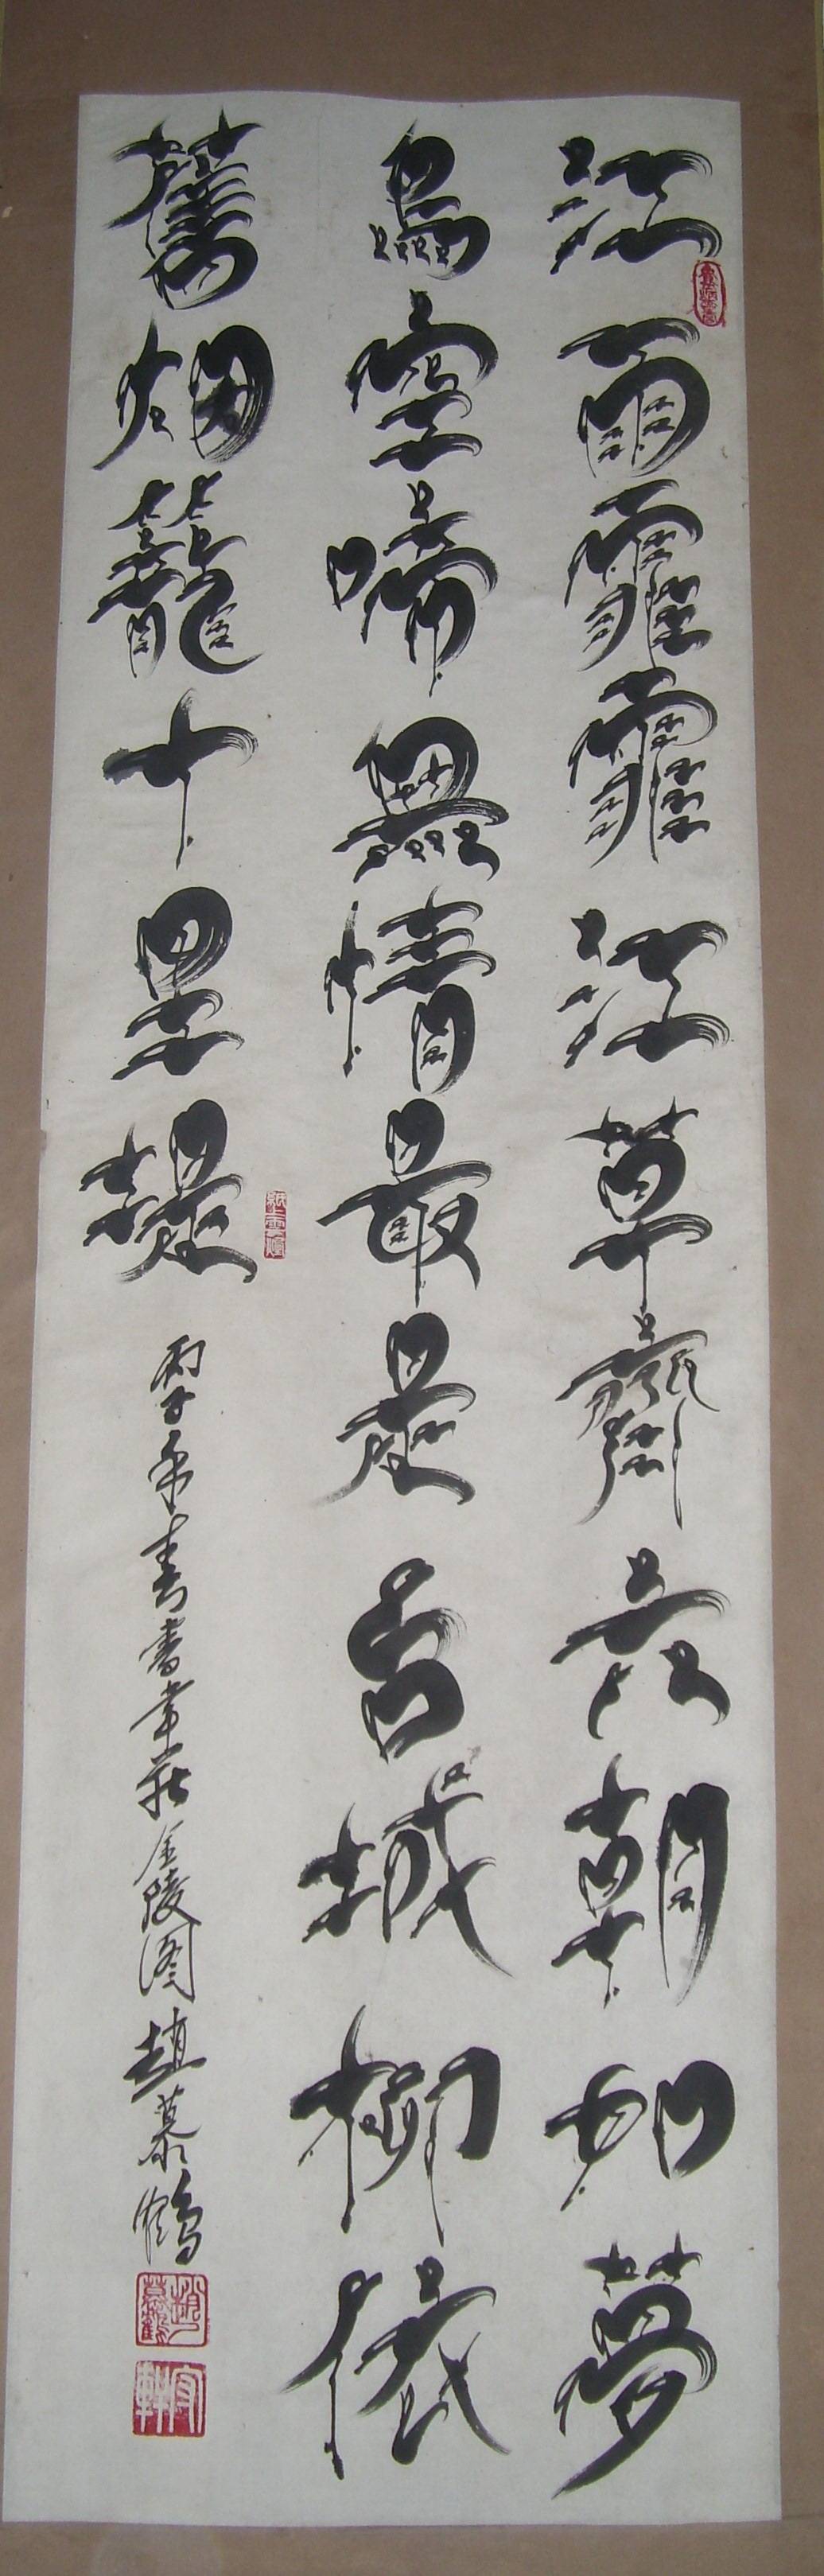 江雨霏霏江草齊六朝如夢
鳥空啼無情最是台城柳依
舊烟籠十里堤
丙子年春書韋莊金陵图趙慕鶴
趙慕鶴